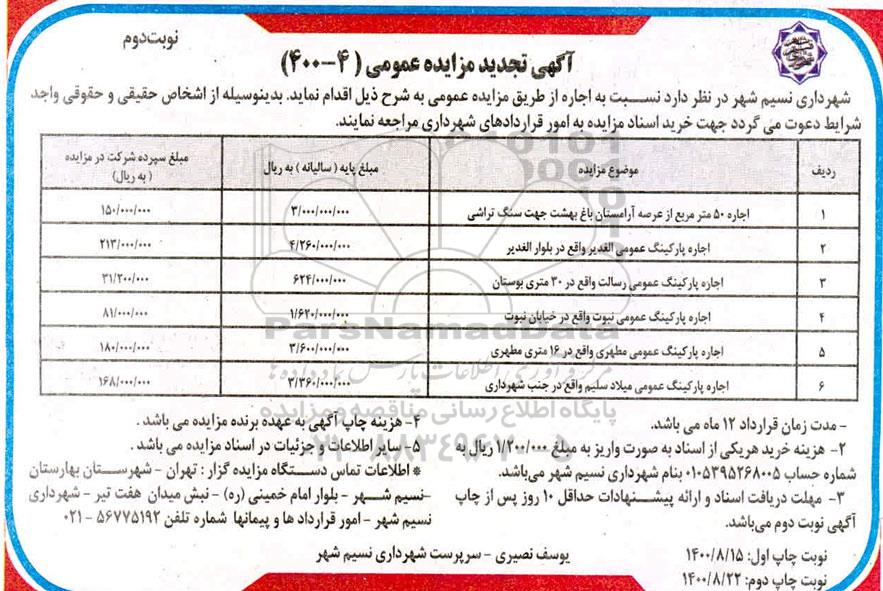 نوبت دوم
آگهی تجدید مزایده عمومی (۴-۴۰۰)
شهرداری نسیم شهر در نظر دارد نسبت به اجاره از طریق مزایده عمومی به شرح ذیل اقدام نماید. بدینوسیله از اشخاص حقیقی و حقوقی واجد
شرایط دعوت می گردد جهت خرید اسناد مزایده به امور قراردادهای شهرداری مراجعه نمایند.
ردیف موضوع مزایده مبلغ پایه (سالیانه) به ریال مبلغ سپرده شرکت در مزایده
(به ریال)
۱ اجاره ۵۰ متر مربع از عرصه آرامستان باغ بهشت جهت سنگ تراشی ۳/۰۰۰/۰۰۰/۰۰۰ ۱۵۰/۰۰۰/۰۰۰
۲ اجاره پارکینگ عمومی الغدیر واقع در بلوار الغدیر ۴/۲۶۰/۰۰۰/۰۰۰ ۲۱۳/۰۰۰/۰۰۰
۳ اجاره پارکینگ عمومی رسالت واقع در ۳۰ متری بوستان ۶۲۴/۰۰۰/۰۰۰ ۳۱/۲۰۰/۰۰۰
۴ اجاره پارکینگ عمومی نبوت واقع در خیابان نبوت ۱/۶۲۰/۰۰۰/۰۰۰ ۸۱/۰۰۰/۰۰۰
۵ اجاره پارکینگ عمومی مطهری واقع در ۱۶ متری مطهری ۳/۶۰۰/۰۰۰/۰۰۰ ۱۸۰/۰۰۰/۰۰۰
۶ اجاره پارکینگ عمومی میلاد سلیم واقع در جنب شهرداری ۳/۳۶۰/۰۰۰/۰۰۰ ۱۶۸/۰۰۰/۰۰۰
ParsNamadData
مرکز فرآوری اطلاعات پارس نماد داده ها
پایگاه اطلاع رسانی مناقصه و مزایده
۰۲۱-۸۸۳۴۹۶۷۰-۵
- مدت زمان قرارداد ۱۲ ماه می باشد.
۲- هزینه خرید هریکی از اسناد به صورت واریز به مبلغ ۱/۲۰۰/۰۰۰ ریال به
شماره حساب ۰۱۰۵۳۹۵۲۶۸۰۰۵ بنام شهرداری نسیم شهر می‌باشد.
۳- مهلت دریافت اسناد و ارائه پیشنهادات حداقل ۱۰ روز پس از چاپ
آگهی نوبت دوم می‌باشد.
۴- هزینه چاپ آگهی به عهده برنده مزایده می باشد .
۵- سایر اطلاعات و جزئیات در اسناد مزایده می باشد .
* اطلاعات تماس دستگاه مزایده گزار : تهران - شهرستان بهارستان
-نسیم شهر - بلوار امام خمینی (ره) - نبش میدان هفت تیر - شهرداری
نسیم شهر - امور قرارداد ها و پیمانها شماره تلفن ۵۶۷۷۵۱۹۲ - ۰۲۱
یوسف نصیری - سرپرست شهرداری نسیم شهر
نوبت چاپ اول: ۱۴۰۰/۸/۱۵
نوبت چاپ دوم: ۱۴۰۰/۸/۲۲